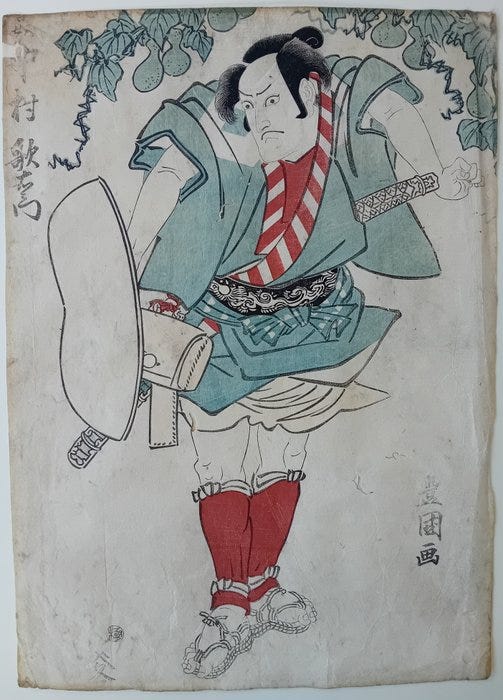 中村歌右衛門
豊國画